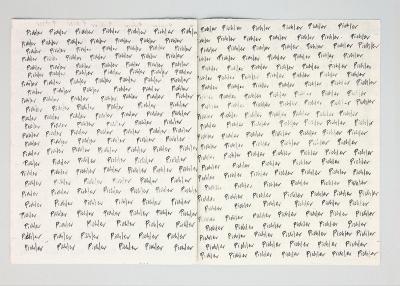 Pichler Pichler Pichler Pichler Pichler Pichler Pichler
Pichler Pichler Pichler Pichler Pichler Pichler Pichler
Pichler Pichler Pichler Pichler Pichler Pichler Pichler
Pichler Pichler Pichler Pichler Pichler Pichler Pichler
Pichler Pichler Pichler Pichler Pichler Pichler Pichler
Pichler Pichler Pichler Pichler Pichler Pichler Pichler
Pichler Pichler Pichler Pichler Pichler Pichler
Pichler Pichler Pichler Pichler Pichler
Pichler Pichler Pichler Pichler Pichler Pichler Pichler
Pichler Pichler Pichler Pichler Pichler
Pichler Pichler Pichler Pichler Pichler Pichler Pichler
Pichler Pichler Pichler Pichler Pichler Pichler
Pichler Pichler Pichler Pichler Pichler Pichler Pichler
Pichler Pichler Pichler Pichler Pichler Pichler
Pichler Pichler Pichler Pichler Pichler Pichler
Pichler Pichler Pichler Pichler Pichler Pichler
Pichler Pichler Pichler Pichler Pichler Pichler
Pichler Pichler Pichler Pichler Pichler Pichler
Pichler Pichler Pichler Pichler Pichler Pichler Pichler
Pichler Pichler Pichler Pichler Pichler Pichler
Pichler Pichler Pichler Pichler Pichler Pichler Pichler
Pichler Pichler Pichler Pichler Pichler Pichler
Pichler Pichler Pichler Pichler Pichler Pichler
Pichler Pichler Pichler Pichler Pichler Pichler
Pichler Pichler Pichler Pichler Pichler Pichler
Pichler Pichler Pichler Pichler Pichler Pichler
Pichler Pichler Pichler Pichler Pichler Pichler Pichler
Pichler Pichler Pichler Pichler Pichler Pichler
Pichler Pichler Pichler Pichler Pichler Pichler
Pichler Pichler Pichler Pichler Pichler Pichler
Pichler Pichler Pichler Pichler Pichler Pichler
Pichler Pichler Pichler Pichler Pichler Pichler
Pichler Pichler Pichler Pichler Pichler Pichler
Pichler Pichler Pichler Pichler Pichler Pichler
Pichler Pichler Pichler Pichler Pichler Pichler
Pichler Pichler Pichler Pichler Pichler Pichler
Pichler Pichler Pichler Pichler Pichler
Pichler Pichler Pichler Pichler Pichler Pichler
Pichler Pichler Pichler Pichler Pichler Pichler
Pichler Pichler Pichler Pichler Pichler
Pichler Pichler Pichler Pichler Pichler Pichler
Pichler Pichler Pichler Pichler Pichler Pichler
Pichler Pichler Pichler Pichler Pichler Pichler
Pichler Pichler Pichler Pichler Pichler Pichler Pichler
Pichler Pichler Pichler Pichler Pichler Pichler
Pichler Pichler Pichler Pichler Pichler Pichler